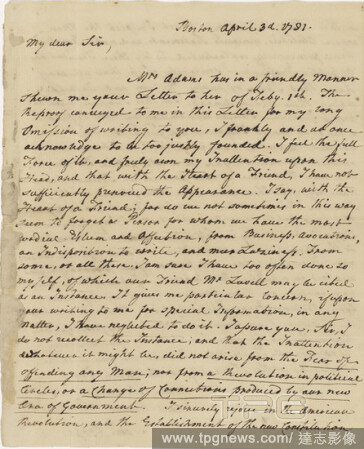 Boston April 3d. 1781.
My dear Sir,
Mrs Adams has in a friendly Manner
shewn me your Letter to her of Feby. 1st. The
Reproof conveyed to me in this Letter for my long
Omission of writing to you, I frankly and at once
acknowledge to be too justly founded. I feel the full
Force of it, and freely own my Inattention upon this
Head, and that with the Heart of a Friend, I have not
sufficiently preserved the Appearance. I say, with the
Heart of a Friend; for do we not sometimes in this way
seem to forget a Person for whom we have the most
cordial Esteem and Affection, from Business, avocations,
an Indisposition to write, and mere Laziness. From
some, or all these I am sure I have too often done so
myself, of which our Friend Mr Lovell may be cited
as an Instance. It gives me particular Concern, if upon
your writing to me for special Information, in any
matter, I have neglected to do it. I assure you, Sir, I
do not recollect the Instance; and that the Inattention
whatever it might be, did not arise from the Fear of
offending any Man; nor from a Revolution in political
Circles, or a Change of Connections produced by our new
Era of Government. I sincerely rejoice in the American
Revolution, and the Establishment of the new Constitution
www.tpgnews.com/達志影像